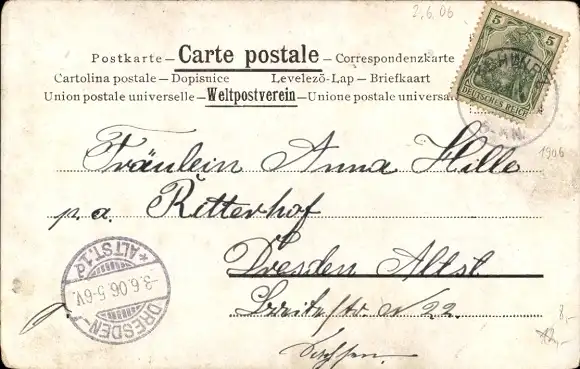 2.6.06
5 5
DEUTSCHES REICH
Postkarte – Carte postale – Correspondenzkarte
Cartolina postale – Dopisnice Levelező-Lap – Briefkaart
Union postale universelle – Weltpostverein – Unione postale universa
1906
Fräulein Anna Hille
p. a. Ritterhof
Dresden Altst.
Breitestr. N 22.
Sachsen
* ALTST. 1 d
-3.6.06. 5-6V.
DRESDEN
8,-
12,-